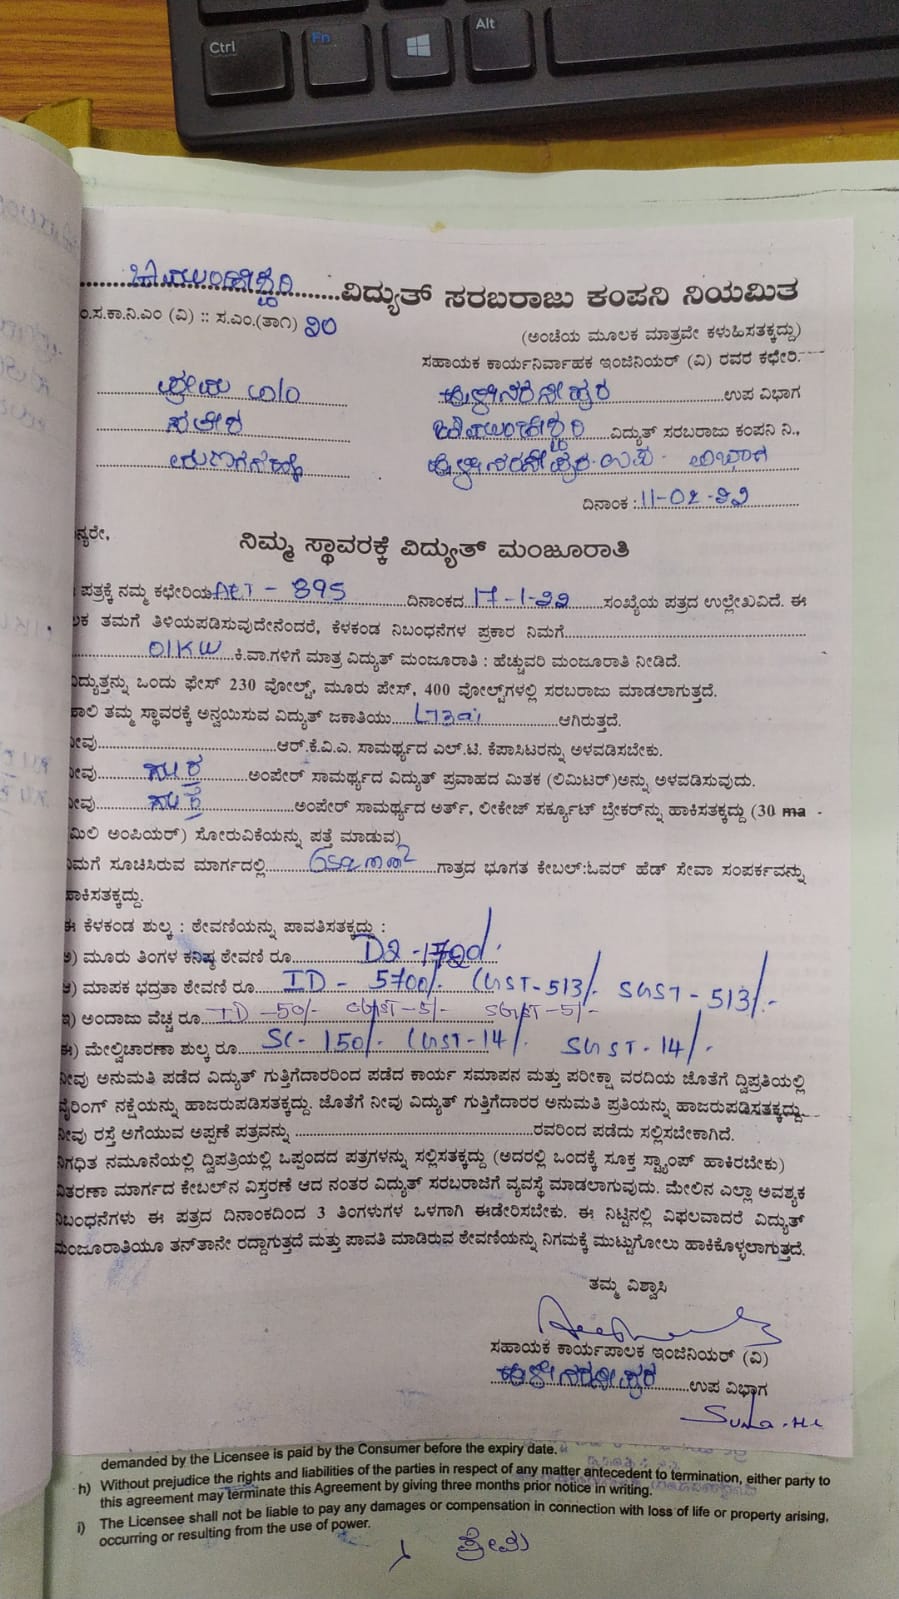 Ctrl
Fn
Alt
ಚಾಮುಂಡೇಶ್ವರಿ ವಿದ್ಯುತ್ ಸರಬರಾಜು ಕಂಪನಿ ನಿಯಮಿತ
ಂ.ಸ.ಕಾ.ನಿ.ಎಂ (ವಿ) :: ಸ.ಎಂ.(ತಾ೧) ೨೦
(ಅಂಚೆಯ ಮೂಲಕ ಮಾತ್ರವೇ ಕಳುಹಿಸತಕ್ಕದ್ದು)
ಸಹಾಯಕ ಕಾರ್ಯನಿರ್ವಾಹಕ ಇಂಜಿನಿಯರ್ (ವಿ) ರವರ ಕಛೇರಿ.
ಪ್ರೇಮ ಉಪ ವಿಭಾಗ
ಸತೀಶ ಚಾಮುಂಡೇಶ್ವರಿ ವಿದ್ಯುತ್ ಸರಬರಾಜು ಕಂಪನಿ ನಿ.,
ದಿನಾಂಕ : 11-02-22
ನ್ಯರೇ,
ನಿಮ್ಮ ಸ್ಥಾವರಕ್ಕೆ ವಿದ್ಯುತ್ ಮಂಜೂರಾತಿ
ಪತ್ರಕ್ಕೆ ನಮ್ಮ ಕಛೇರಿಯ AET - 895 ದಿನಾಂಕದ 17-1-22 ಸಂಖ್ಯೆಯ ಪತ್ರದ ಉಲ್ಲೇಖವಿದೆ. ಈ
ಲಕ ತಮಗೆ ತಿಳಿಯಪಡಿಸುವುದೇನೆಂದರೆ, ಕೆಳಕಂಡ ನಿಬಂಧನೆಗಳ ಪ್ರಕಾರ ನಿಮಗೆ
01KW ಕಿ.ವಾ.ಗಳಿಗೆ ಮಾತ್ರ ವಿದ್ಯುತ್ ಮಂಜೂರಾತಿ : ಹೆಚ್ಚುವರಿ ಮಂಜೂರಾತಿ ನೀಡಿದೆ.
ವಿದ್ಯುತ್ತನ್ನು ಒಂದು ಫೇಸ್ 230 ವೋಲ್ಟ್, ಮೂರು ಪೇಸ್, 400 ವೋಲ್ಟ್‌ಗಳಲ್ಲಿ ಸರಬರಾಜು ಮಾಡಲಾಗುತ್ತದೆ.
ಹಾಲಿ ತಮ್ಮ ಸ್ಥಾವರಕ್ಕೆ ಅನ್ವಯಿಸುವ ವಿದ್ಯುತ್ ಜಕಾತಿಯು ಆಗಿರುತ್ತದೆ.
ನೀವು ಆರ್.ಕೆ.ವಿ.ಎ. ಸಾಮರ್ಥ್ಯದ ಎಲ್.ಟಿ. ಕೆಪಾಸಿಟರನ್ನು ಅಳವಡಿಸಬೇಕು.
ನೀವು ಸೂಕ್ತ ಅಂಪೇರ್ ಸಾಮರ್ಥ್ಯದ ವಿದ್ಯುತ್ ಪ್ರವಾಹದ ಮಿತಕ (ಲಿಮಿಟರ್)ಅನ್ನು ಅಳವಡಿಸುವುದು.
ನೀವು ಸೂಕ್ತ ಅಂಪೇರ್ ಸಾಮರ್ಥ್ಯದ ಅರ್ತ್, ಲೀಕೇಜ್ ಸರ್ಕ್ಯೂಟ್ ಬ್ರೇಕರ್‌ನ್ನು ಹಾಕಿಸತಕ್ಕದ್ದು (30 ma
ಮಿಲಿ ಅಂಪಿಯರ್) ಸೋರುವಿಕೆಯನ್ನು ಪತ್ತೆ ಮಾಡುವ)
ನಿಮಗೆ ಸೂಚಿಸಿರುವ ಮಾರ್ಗದಲ್ಲಿ ಗಾತ್ರದ ಭೂಗತ ಕೇಬಲ್:ಓವರ್ ಹೆಡ್ ಸೇವಾ ಸಂಪರ್ಕವನ್ನು
ಹಾಕಿಸತಕ್ಕದ್ದು.
ಈ ಕೆಳಕಂಡ ಶುಲ್ಕ : ಠೇವಣಿಯನ್ನು ಪಾವತಿಸತಕ್ಕದ್ದು :
ಅ) ಮೂರು ತಿಂಗಳ ಕನಿಷ್ಠ ಠೇವಣಿ ರೂ.
ಆ) ಮಾಪಕ ಭದ್ರತಾ ಠೇವಣಿ ರೂ. ID - 5700/- CGST-513/- SGST-513/-
ಇ) ಅಂದಾಜು ವೆಚ್ಚ ರೂ. ID -50/- CGST-5/- SGST-5/-
ಈ) ಮೇಲ್ವಿಚಾರಣಾ ಶುಲ್ಕ ರೂ. SC- 150/- CGST-14/- SGST-14/-
ನೀವು ಅನುಮತಿ ಪಡೆದ ವಿದ್ಯುತ್ ಗುತ್ತಿಗೆದಾರರಿಂದ ಪಡೆದ ಕಾರ್ಯ ಸಮಾಪನ ಮತ್ತು ಪರೀಕ್ಷಾ ವರದಿಯ ಜೊತೆಗೆ ದ್ವಿಪ್ರತಿಯಲ್ಲಿ
ವೈರಿಂಗ್ ನಕ್ಷೆಯನ್ನು ಹಾಜರುಪಡಿಸತಕ್ಕದ್ದು. ಜೊತೆಗೆ ನೀವು ವಿದ್ಯುತ್ ಗುತ್ತಿಗೆದಾರರ ಅನುಮತಿ ಪ್ರತಿಯನ್ನು ಹಾಜರುಪಡಿಸತಕ್ಕದ್ದು.
ನೀವು ರಸ್ತೆ ಅಗೆಯುವ ಅಪ್ಪಣೆ ಪತ್ರವನ್ನು ರವರಿಂದ ಪಡೆದು ಸಲ್ಲಿಸಬೇಕಾಗಿದೆ.
ನಿಗಧಿತ ನಮೂನೆಯಲ್ಲಿ ದ್ವಿಪತ್ರಿಯಲ್ಲಿ ಒಪ್ಪಂದದ ಪತ್ರಗಳನ್ನು ಸಲ್ಲಿಸತಕ್ಕದ್ದು (ಅದರಲ್ಲಿ ಒಂದಕ್ಕೆ ಸೂಕ್ತ ಸ್ಟ್ಯಾಂಪ್ ಹಾಕಿರಬೇಕು)
ವಿತರಣಾ ಮಾರ್ಗದ ಕೇಬಲ್‌ನ ವಿಸ್ತರಣೆ ಆದ ನಂತರ ವಿದ್ಯುತ್ ಸರಬರಾಜಿಗೆ ವ್ಯವಸ್ಥೆ ಮಾಡಲಾಗುವುದು. ಮೇಲಿನ ಎಲ್ಲಾ ಅವಶ್ಯಕ
ನಿಬಂಧನೆಗಳು ಈ ಪತ್ರದ ದಿನಾಂಕದಿಂದ 3 ತಿಂಗಳುಗಳ ಒಳಗಾಗಿ ಈಡೇರಿಸಬೇಕು. ಈ ನಿಟ್ಟಿನಲ್ಲಿ ವಿಫಲವಾದರೆ ವಿದ್ಯುತ್
ಮಂಜೂರಾತಿಯೂ ತನ್‌ತಾನೇ ರದ್ದಾಗುತ್ತದೆ ಮತ್ತು ಪಾವತಿ ಮಾಡಿರುವ ಠೇವಣಿಯನ್ನು ನಿಗಮಕ್ಕೆ ಮುಟ್ಟುಗೋಲು ಹಾಕಿಕೊಳ್ಳಲಾಗುತ್ತದೆ.
ತಮ್ಮ ವಿಶ್ವಾಸಿ
ಸಹಾಯಕ ಕಾರ್ಯಪಾಲಕ ಇಂಜಿನಿಯರ್ (ವಿ)
ಉಪ ವಿಭಾಗ
demanded by the Licensee is paid by the Consumer before the expiry date.
h) Without prejudice the rights and liabilities of the parties in respect of any matter antecedent to termination, either party to
this agreement may terminate this Agreement by giving three months prior notice in writing.
i) The Licensee shall not be liable to pay any damages or compensation in connection with loss of life or property arising,
occurring or resulting from the use of power.
ಪ್ರೇಮ